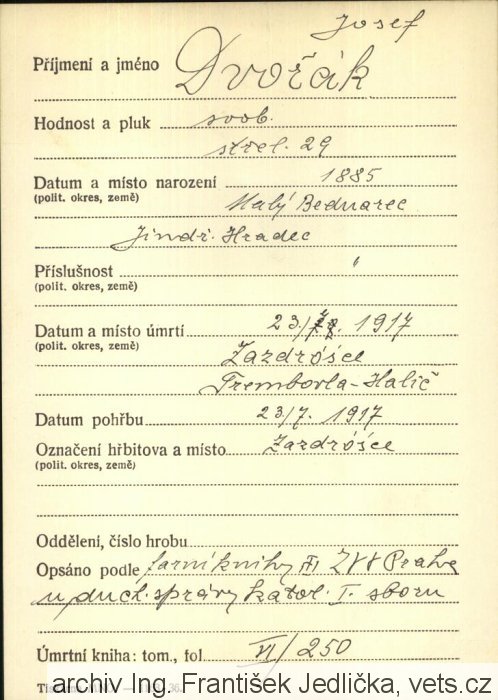 Josef
Příjmení a jméno Dvořák
Hodnost a pluk svob.
střel. 29
Datum a místo narození 1885
(polit. okres, země) Malý Bednarec
Jindř. Hradec
Příslušnost "
(polit. okres, země)
Datum a místo úmrtí 23./7. 1917
(polit. okres, země) Zazdrósce
Trembovla-Halič
Datum pohřbu 23/7. 1917
Označení hřbitova a místo Zazdrósce
(polit. okres, země)
Oddělení, číslo hrobu
Opsáno podle farní knihy ZVV Praha
u duch. správy katol. I. sboru
Úmrtní kniha: tom., fol. VI/250
archiv Ing. František Jedlička, vets.cz